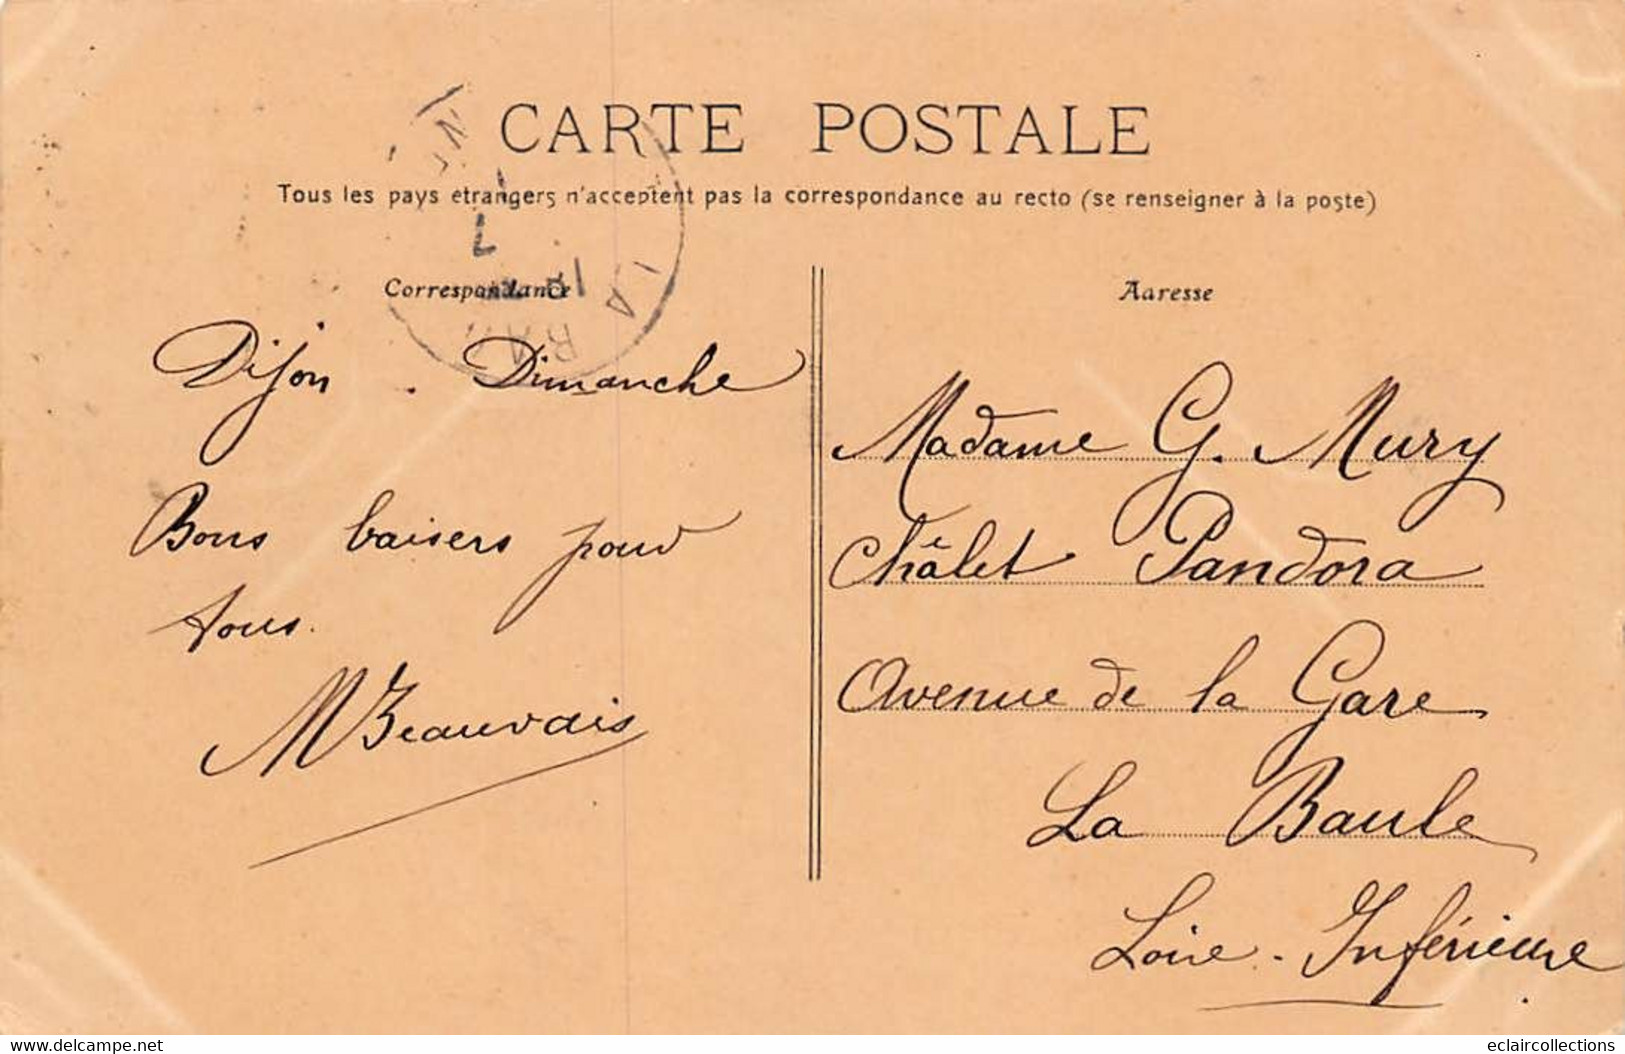 CARTE POSTALE
Tous les pays étrangers n'acceptent pas la correspondance au recto (se renseigner à la poste)
Correspondance
Dijon . Dimanche
Bons baisers pour
tous.
M Beauvais
Adresse
Madame G. Mury
Châlet Pandora
Avenue de la Gare
La Baule
Loire - Inférieure
LA
delcampe.net
eclaircollections